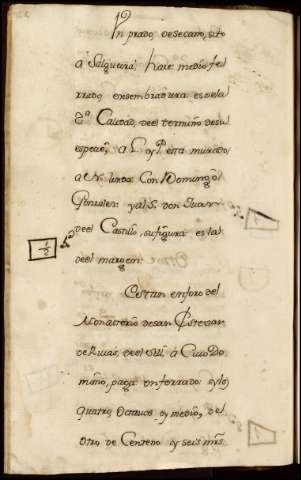 Un prado de secano, sito
a Salgueira, hace medio fe
rrado en sembradura es de la
2ª Calidad, del termino de su
especie, a L. y P. esta murado
a N. linda Con Domingo
Gonzalez y al S. don Juan
del Castillo, su figura es la
del margen.
1/2
Es tan en foro del
Monasterio de san Estevan
de Rivas, del Sil, à Cuio Do
minio, paga un ferrado y los
quatro octavos y medio, de
otro de Centeno y seis mrs.